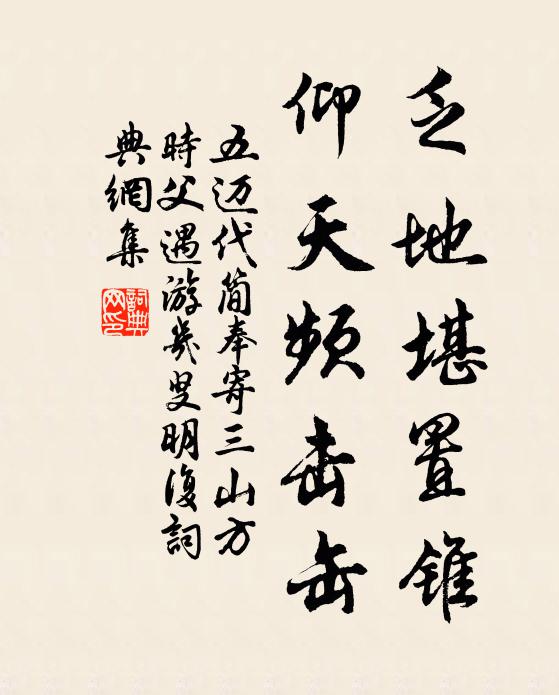 乏地堪置錐
仰天频击缶
五迈代简奉寄三山方
時父遇游幾叟明復詞
典網集
詞典网印